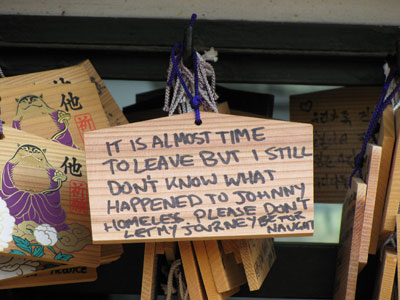 IT IS ALMOST TIME
TO LEAVE BUT I STILL
DON'T KNOW WHAT
HAPPENED TO JOHNNY
HOMELESS. PLEASE DON'T
LET MY JOURNEY BE FOR
NAUGHT
他
他